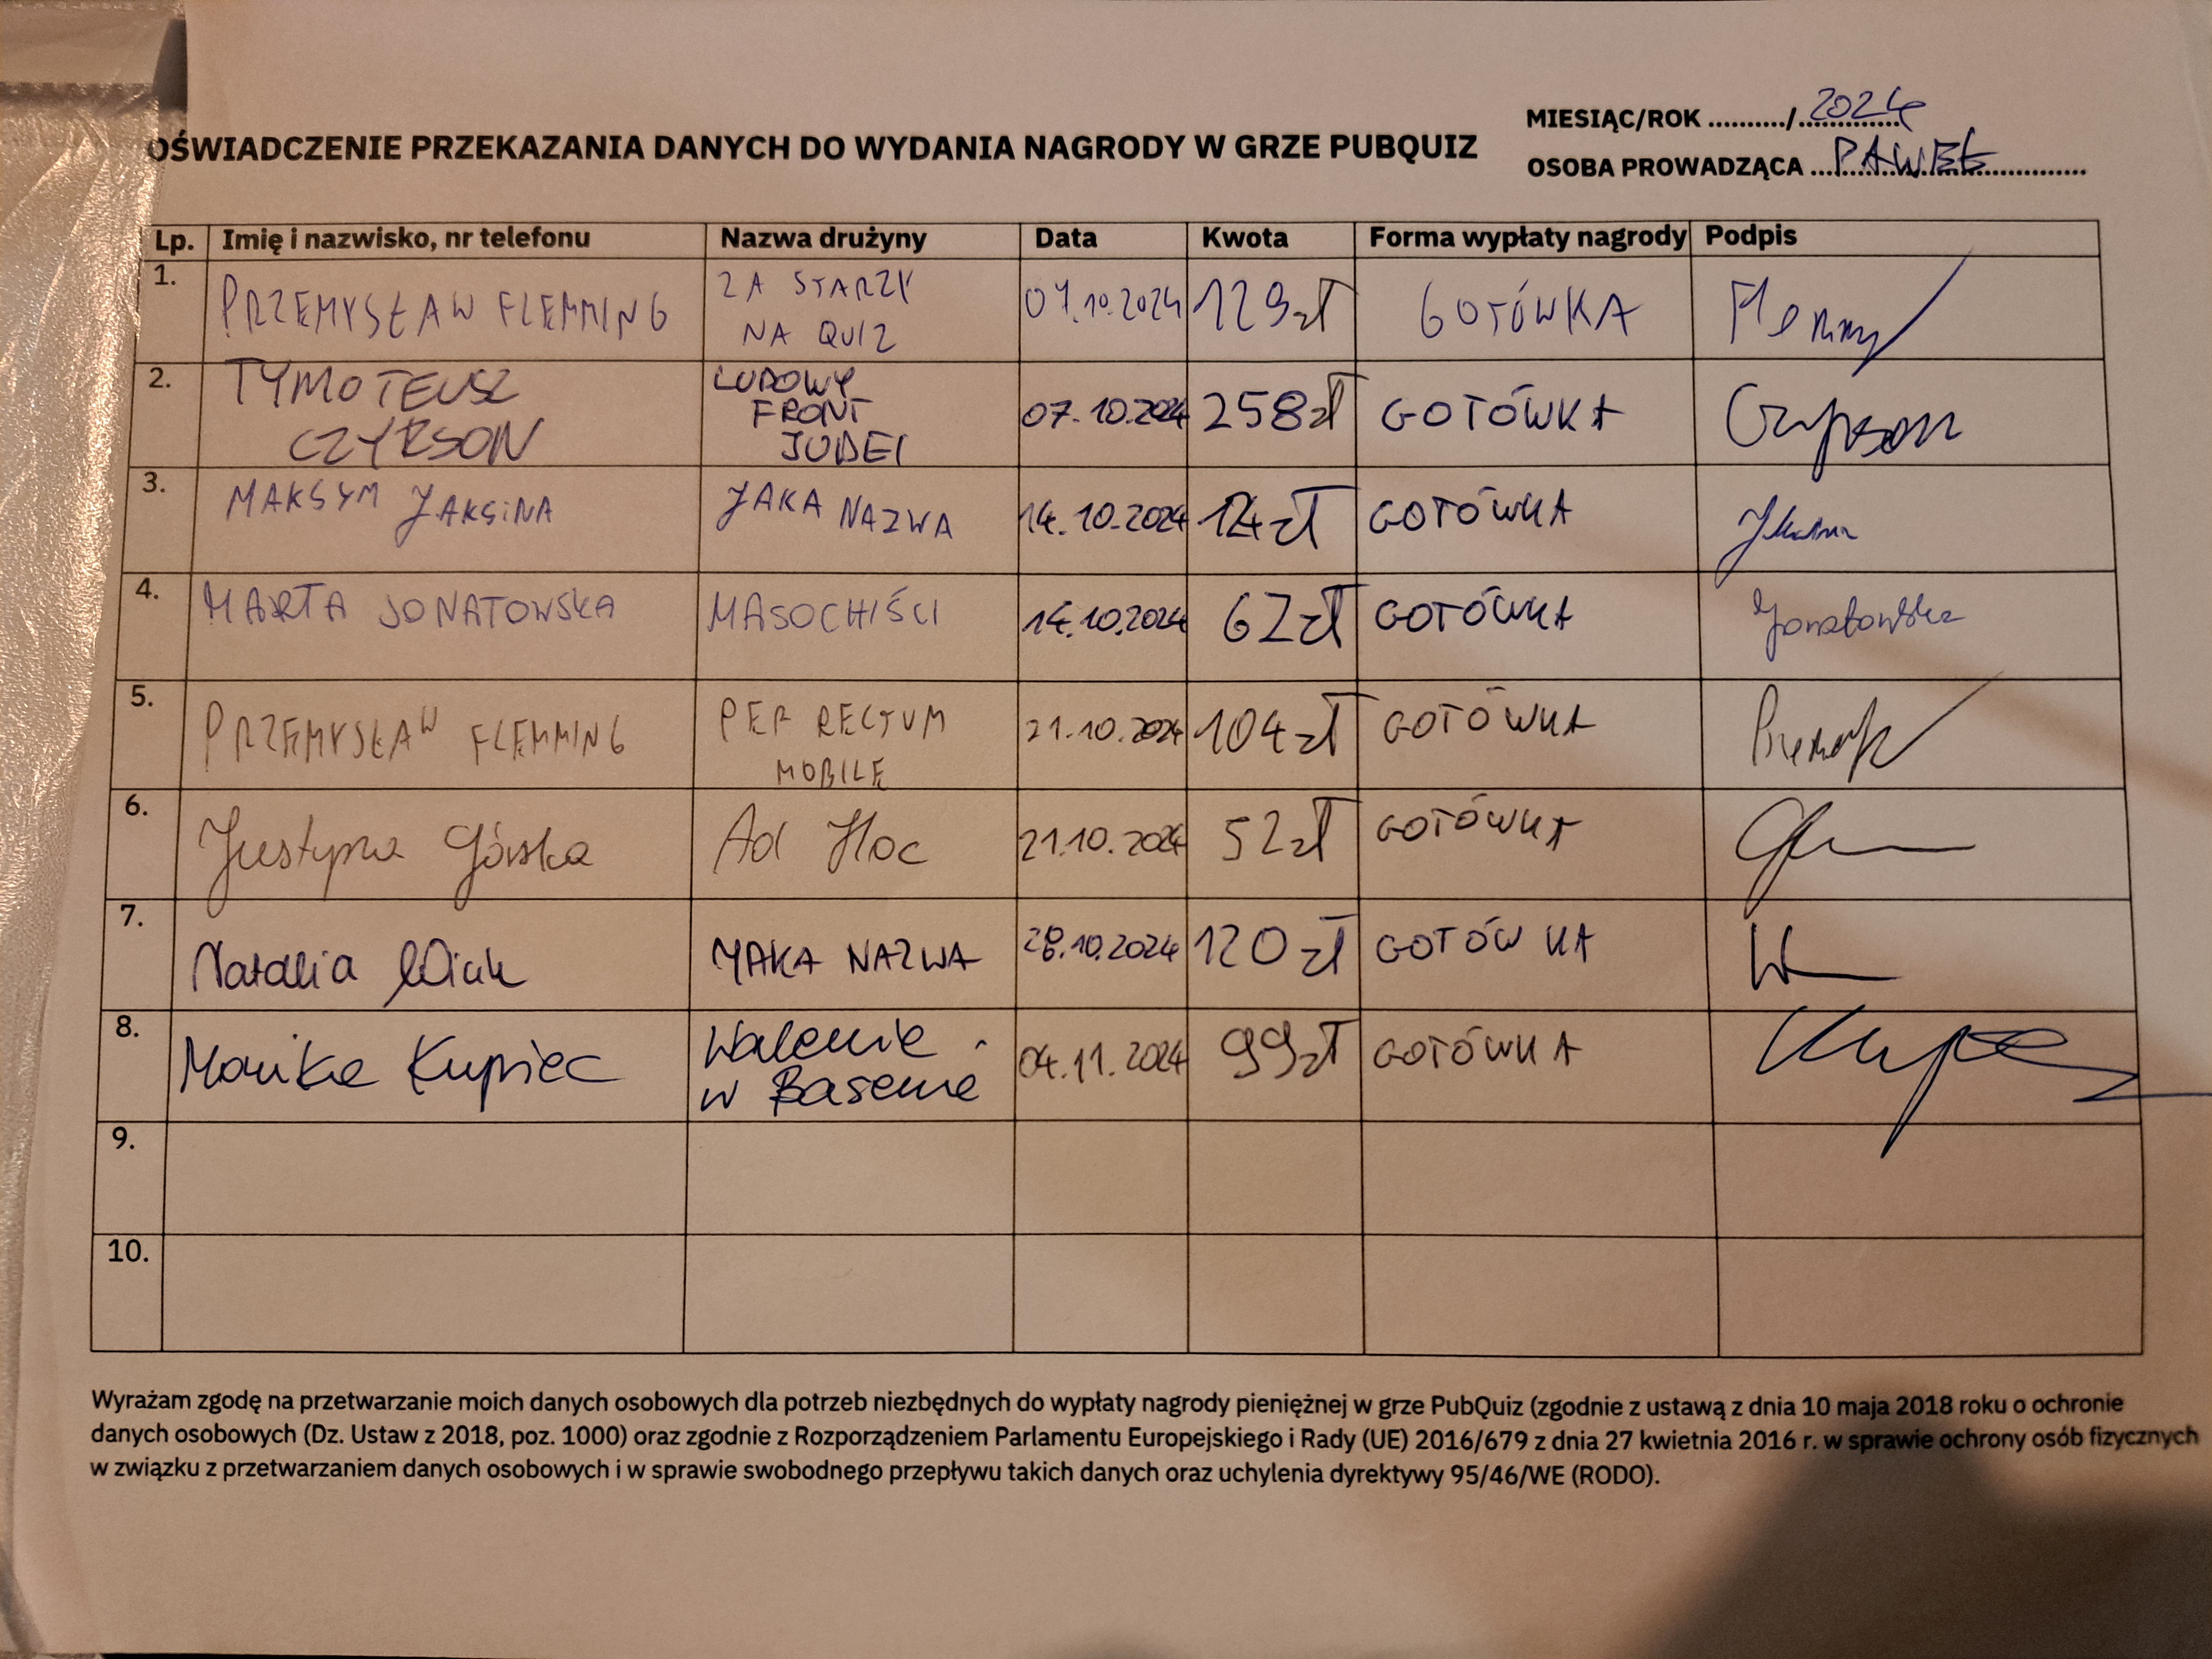 MIESIĄC/ROK ........../.............. 2024
OŚWIADCZENIE PRZEKAZANIA DANYCH DO WYDANIA NAGRODY W GRZE PUBQUIZ
OSOBA PROWADZĄCA .... PAWEŁ ....
Lp. Imię i nazwisko, nr telefonu Nazwa drużyny Data Kwota Forma wypłaty nagrody Podpis
1. PRZEMYSŁAW FLEMMING ZA STARZY 07.10.2024 129zł GOTÓWKA
NA QUIZ
2. TYMOTEUSZ LUDOWY
FRONT 07.10.2024 258zł GOTÓWKA
CZYRSON JUDEI Czyrson
3. MAKSYM JAKSINA JAKA NAZWA 14.10.2024 GOTÓWKA
4. MARTA JONATOWSKA MASOCHIŚCI 14.10.2024 62zł GOTÓWKA Jonatowska
5. PRZEMYSŁAW FLEMMING PER RECTUM 21.10.2024 104zł GOTÓWKA
MOBILE
6. Justyna Górska Ad Hoc 21.10.2024 52zł GOTÓWKA
7. Natalia YAKA NAZWA 28.10.2024 120zł GOTÓWKA
8. Monika Kupiec Walenie 04.11.2024 99zł GOTÓWKA
w Basenie
9.
10.
Wyrażam zgodę na przetwarzanie moich danych osobowych dla potrzeb niezbędnych do wypłaty nagrody pieniężnej w grze PubQuiz (zgodnie z ustawą z dnia 10 maja 2018 roku o ochronie
danych osobowych (Dz. Ustaw z 2018, poz. 1000) oraz zgodnie z Rozporządzeniem Parlamentu Europejskiego i Rady (UE) 2016/679 z dnia 27 kwietnia 2016 r. w sprawie ochrony osób fizycznych
w związku z przetwarzaniem danych osobowych i w sprawie swobodnego przepływu takich danych oraz uchylenia dyrektywy 95/46/WE (RODO).